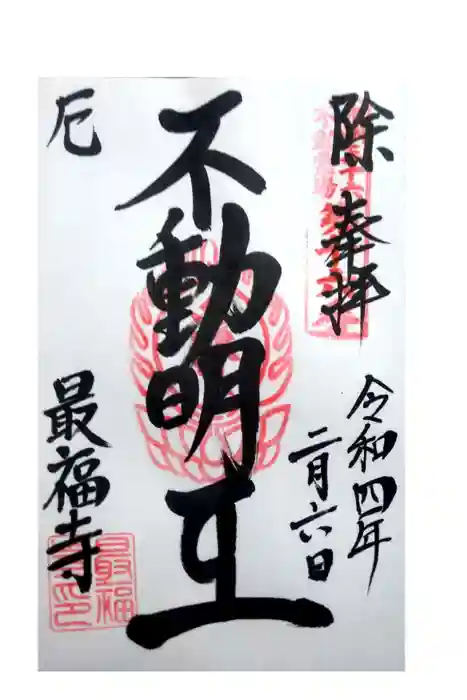 除
奉拝
令和四年
二月六日
不動明王
厄
最福寺
最福
寺印